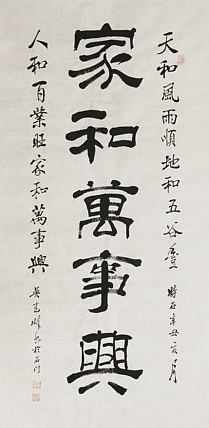 天和風雨順地和五谷豐
時在辛丑
家和萬事興
人和百業旺家和萬事興